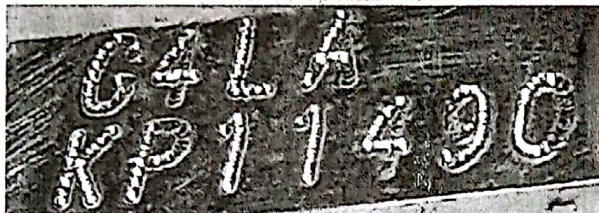 G4LA
KP11490